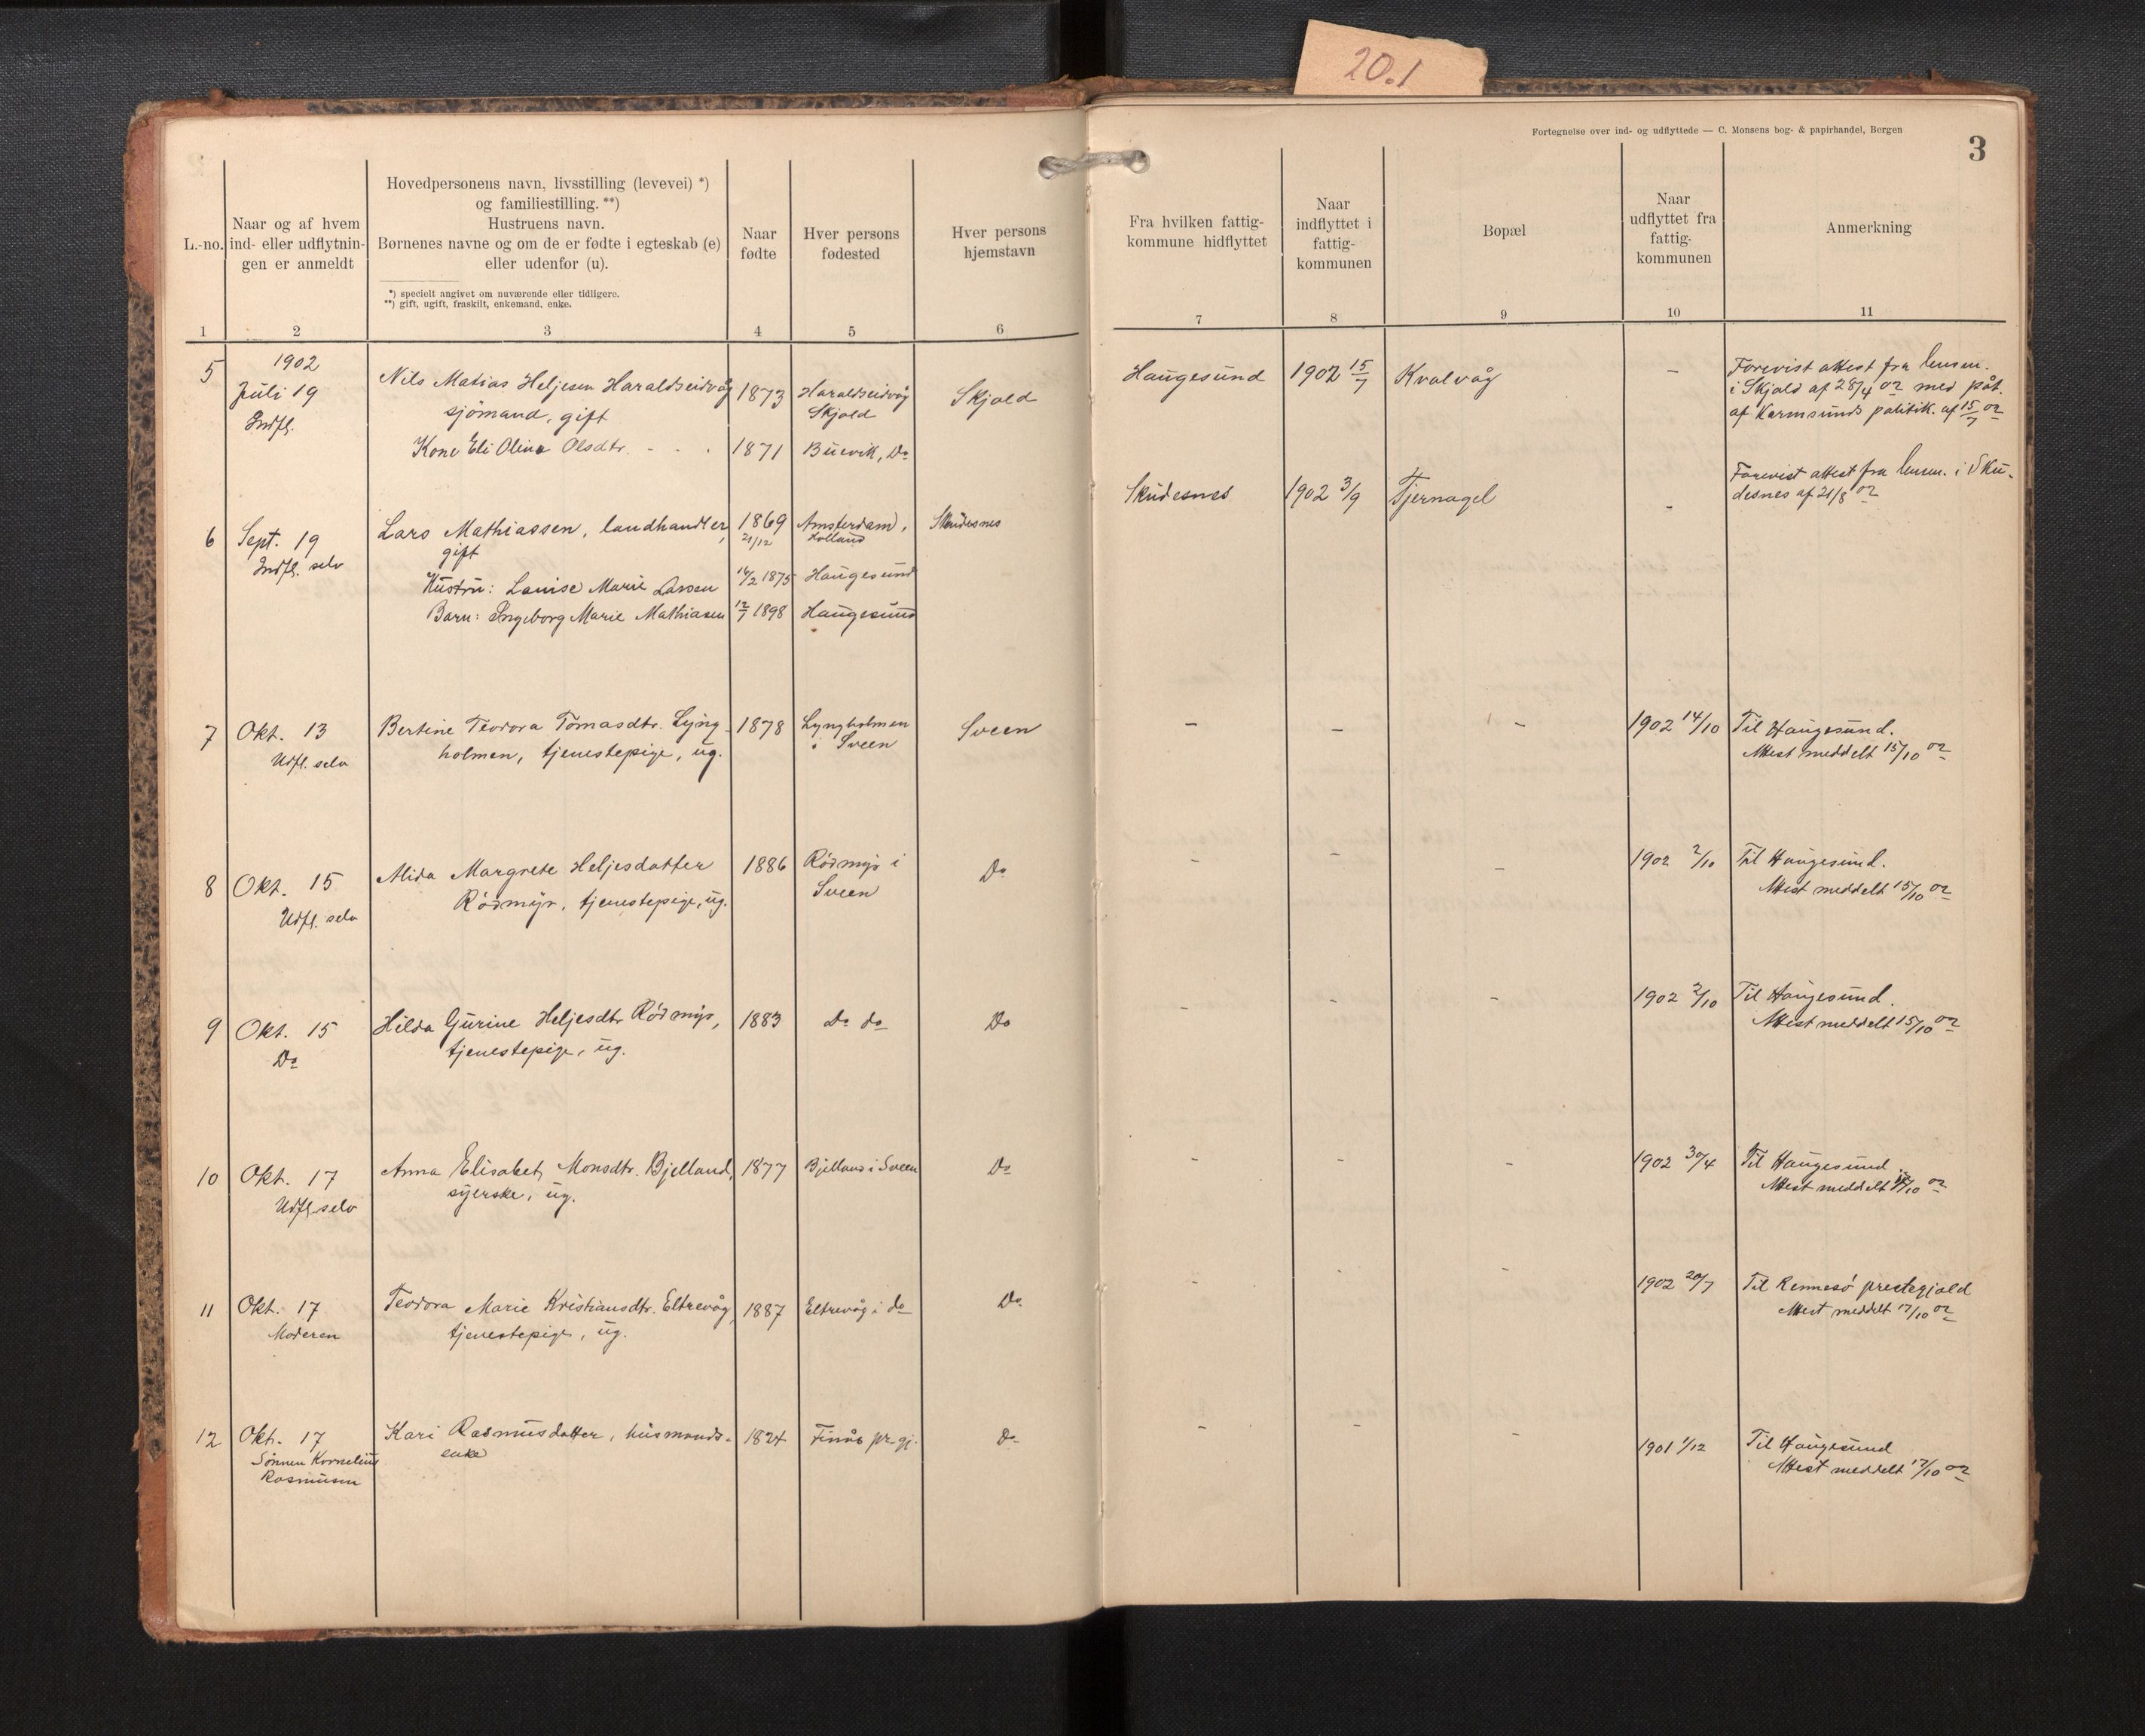 20.1
Fortegnelse over ind- og udflyttede — C. Monsens bog- & papirhandel, Bergen
3
L.-no.
Naar og af hvem
ind- eller udflytnin-
gen er anmeldt
Hovedpersonens navn, livsstilling (levevei) *)
og familiestilling. **)
Hustruens navn.
Børnenes navne og om de er fødte i egteskab (e)
eller udenfor (u).
*) specielt angivet om nuværende eller tidligere.
**) gift, ugift, fraskilt, enkemand, enke.
Naar
fødte
Hver persons
fødested
Hver persons
hjemstavn
Fra hvilken fattig-
kommune hidflyttet
Naar
indflyttet i
fattig-
kommunen
Bopæl
Naar
udflyttet fra
fattig-
kommunen
Anmerkning
1 2 3 4 5 6 7 8 9 10 11
5
1902
Juli 19
Indfl.
Nils Matias Heljesen Haraldseidvåg
sjömand, gift
Kone Eli Olina Olsdtr. - . .
1873
1871
Haraldseidvåg
Skjold
Buevik, Do
Skjold
Haugesund
1902 15/7
Kvalvåg
-
Forevist attest fra lensm.
i Skjold af 28/4 02 med påt.
af Karmsunds politik. af 15/7 02
6
Sept. 19
Indfl. selv
Lars Mathiassen, landhandler,
gift
Hustru: Louise Marie Larsen
Barn: Ingeborg Marie Mathiasen
1869
21/12
14/2 1875
12/7 1898
Amsterdam,
Holland
Haugesund
Haugesund
Skudesnes
Skudesnes
1902 3/9
Tjernagel
-
Forevist attest fra lensm. i Sku-
desnes af 21/8 02
7
Okt. 13
Udfl. selv
Bertine Teodora Tomasdtr. Lyng-
holmen, tjenestepige, ug.
1878
Lyngholmen
i Sveen
Sveen
-
-
-
1902 14/10
Til Haugesund.
Attest meddelt 15/10 02
8
Okt. 15
Udfl. selv
Alida Margrete Heljesdatter
Rödmyr, tjenestepige, ug.
1886
Rödmyr i
Sveen
Do
-
-
-
1902 2/10
Til Haugesund.
Attest meddelt 15/10 02
9
Okt. 15
Do
Hilda Gurine Heljesdtr Rödmyr,
tjenestepige, ug.
1883
Do do
Do
-
-
-
1902 2/10
Til Haugesund.
Attest meddelt 15/10 02
10
Okt. 17
Udfl. selv
Anna Elisabet Monsdtr. Bjelland,
syerske, ug.
1877
Bjelland i Sveen
Do
-
-
-
1902 30/4
Til Haugesund.
Attest meddelt /10 02
11
Okt. 17
Moderen
Teodora Marie Kristiansdtr. Eltrevåg,
tjenestepige, ug.
1887
Eltrevåg i do
Do
-
-
-
1902 20/7
Til Rennesö prestegjeld
Attest meddelt 17/10 02
12
Okt. 17
Sönnen Kornelius
Rasmusen
Kari Rasmusdatter, husmands-
enke
1824
Finås pr.gj.
Do
-
-
-
1901 1/12
Til Haugesund
Attest meddelt 17/10 02